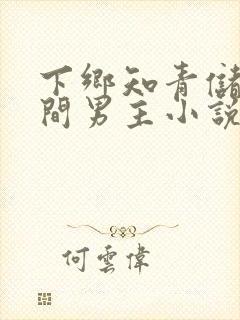 下鄉知青儲
間男主小說
何雲偉